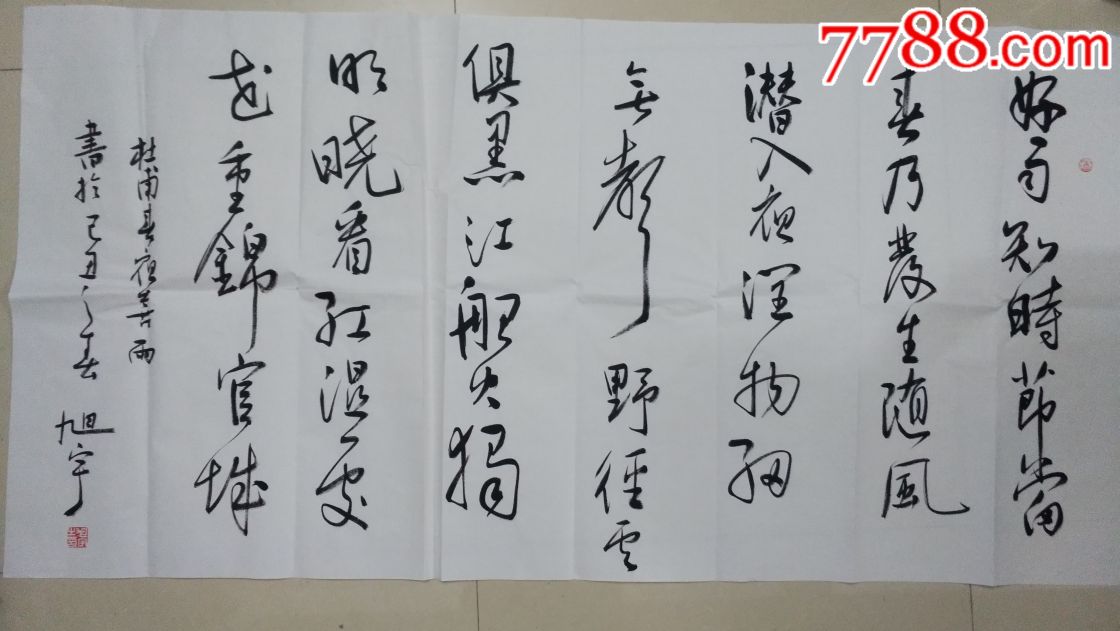 7788.com
好雨知時節當
春乃發生随風
潜入夜潤物細
無聲野徑雲
俱黑江船火獨
明晓看紅濕處
花重錦官城
杜甫春夜喜雨
書於己丑之春 旭宇